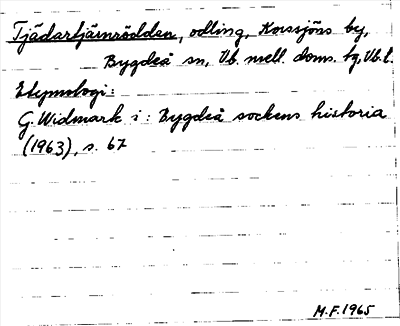 Tjädartjärnrödden, odling, Korssjöns by,
Bygdeå sn, Vb. mell. doms. tg, Vb. l.
Etymologi:
G. Widmark i: Bygdeå sockens historia
(1963), s. 67
M.F. 1965